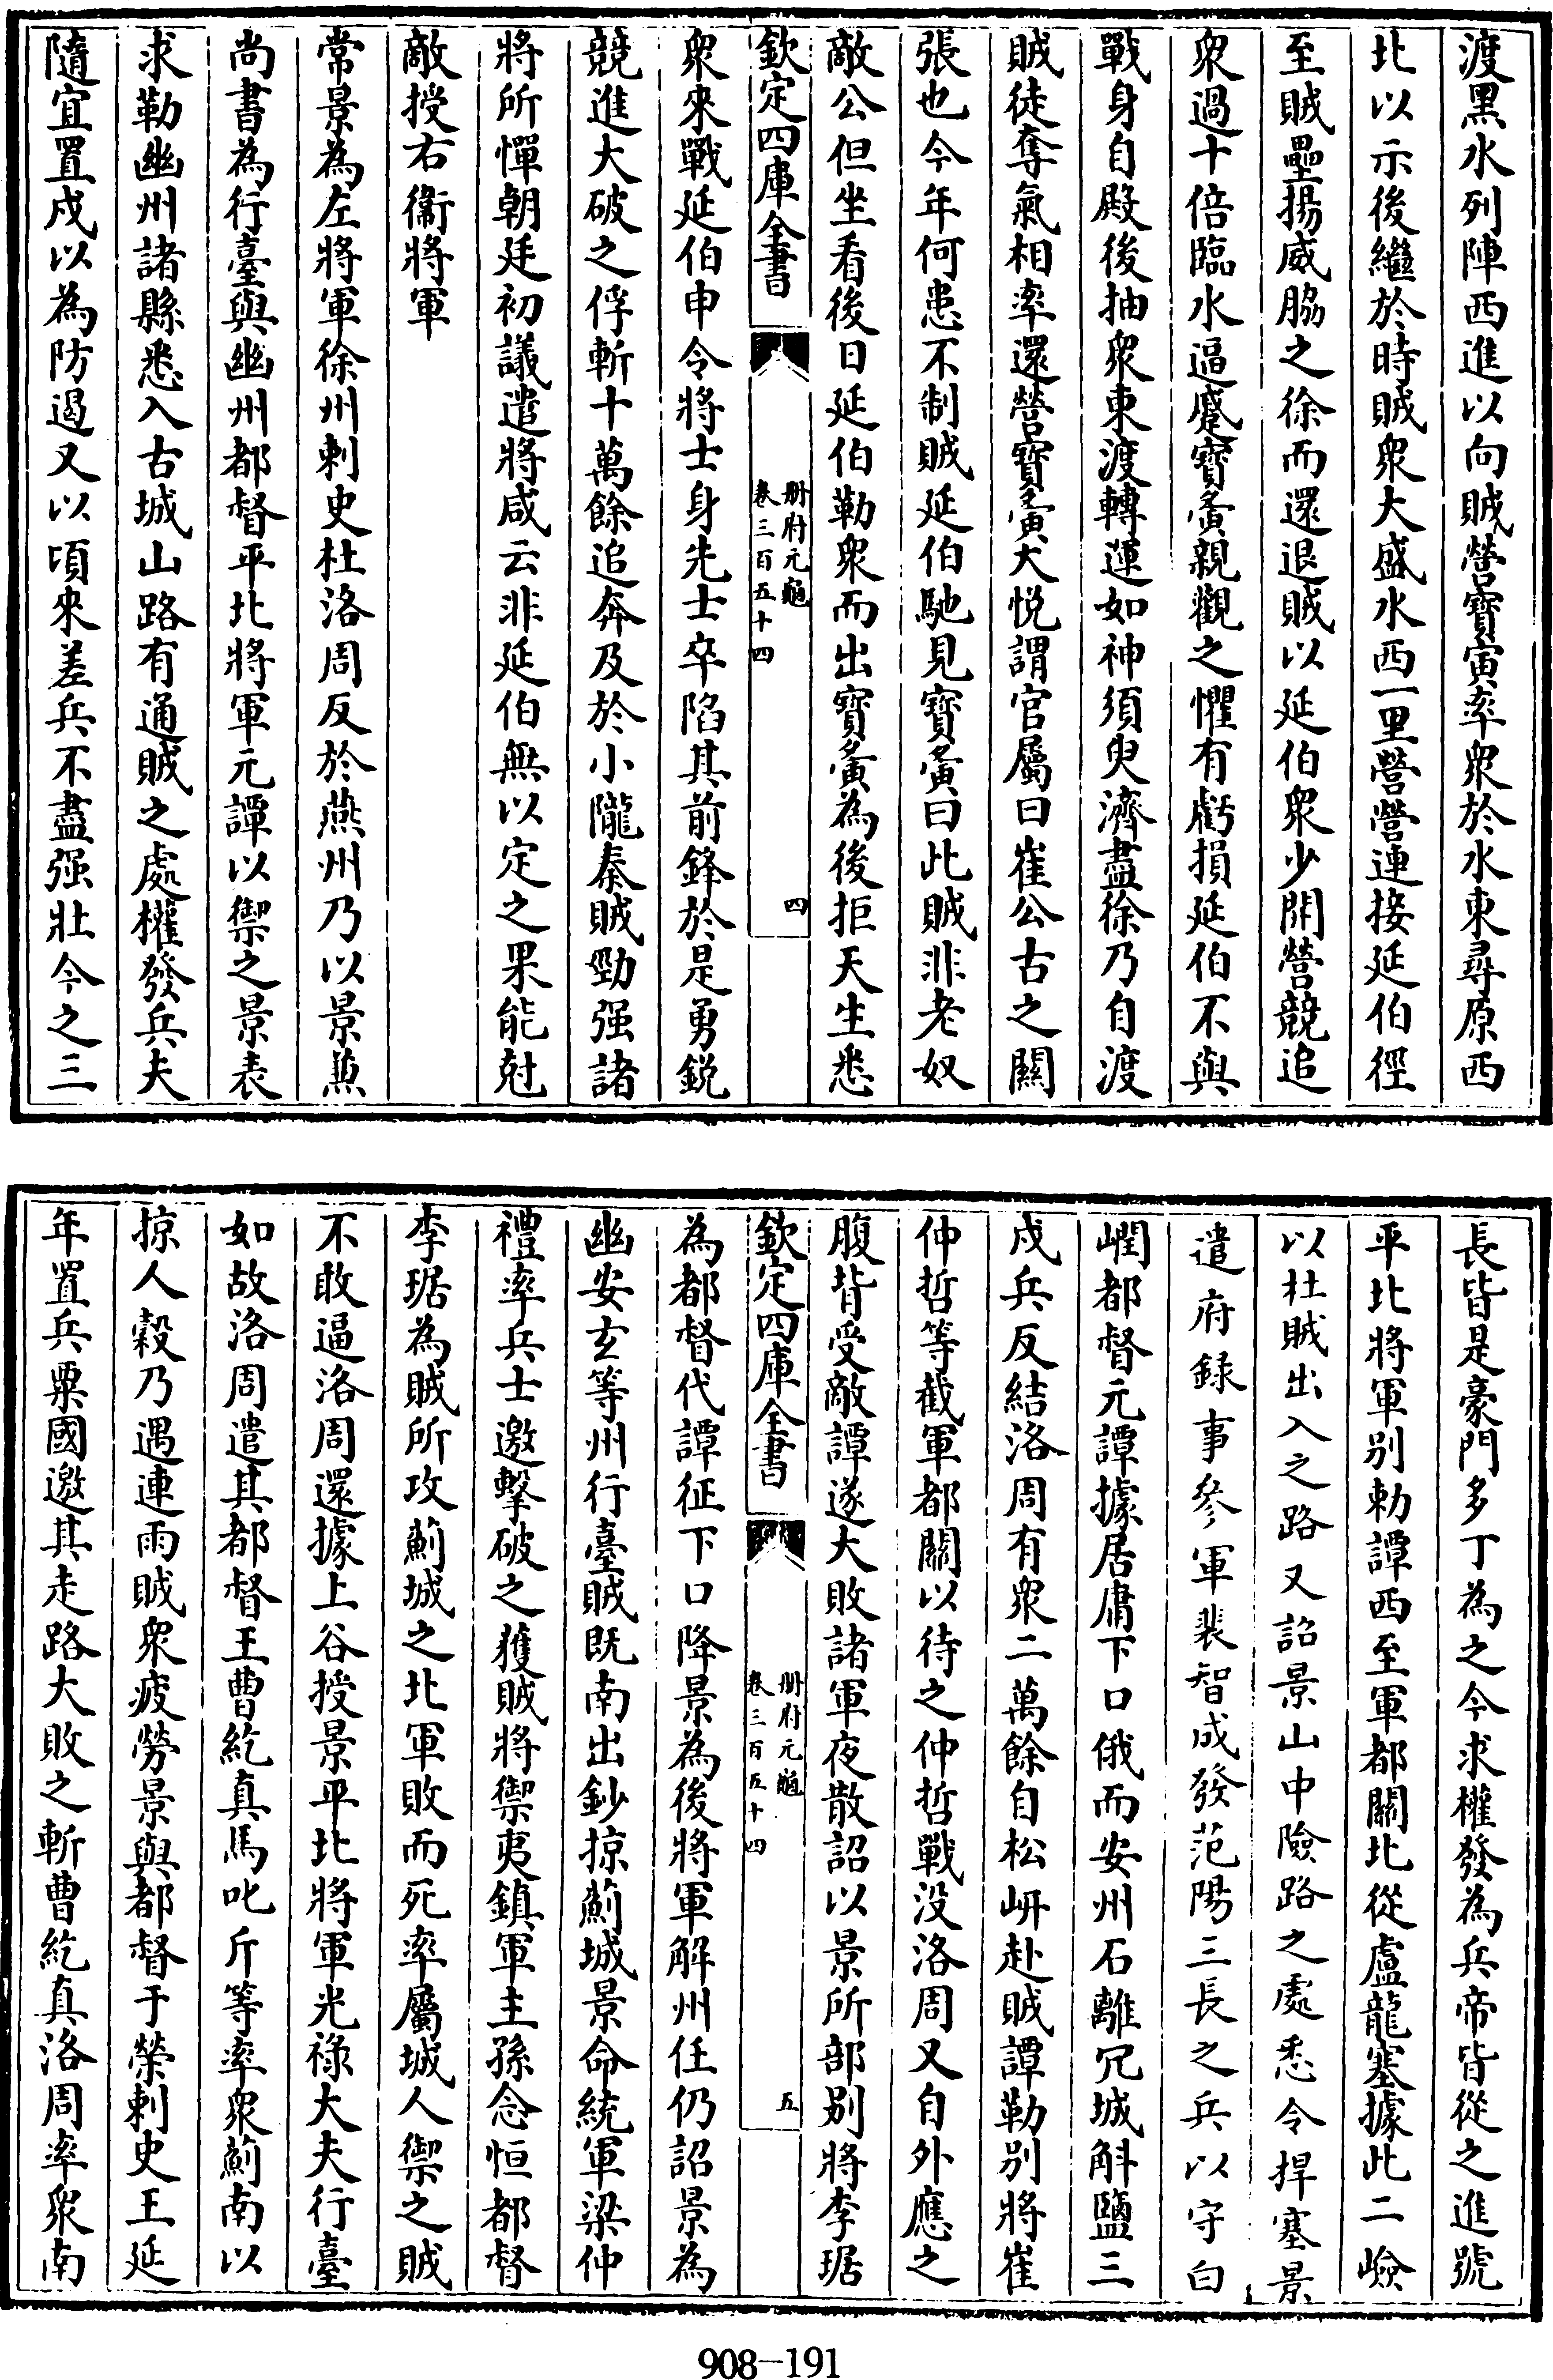 渡黑水列陣西進以向賊營寶寅率衆於水東尋原西
北以示後繼於時賊衆大盛水西一里營營連接延伯徑
至賊壘揚威脇之徐而還退賊以延伯衆少開營競追
衆過十倍臨水逼蹙寶夤親觀之懼有虧損延伯不與
戰身自殿後抽衆東渡轉運如神須臾濟盡徐乃自渡
賊徒奪氣相率還營寶夤大悅謂官屬曰崔公古之關
張也今年何患不制賊延伯馳見寶夤曰此賊非老奴
敵公但坐看後日延伯勒衆而出寶夤為後拒天生悉
欽定四庫全書
册府元龜
卷三百五十四
四
衆來戰延伯申令將士身先士卒陷其前鋒於是勇銳
競進大破之俘斬十萬餘追奔及於小隴秦賊勁强諸
將所憚朝廷初議遣將咸云非延伯無以定之果能尅
敵授右衞將軍
常景為左將軍徐州刺史杜洛周反於燕州乃以景兼
尚書為行臺與幽州都督平北將軍元譚以禦之景表
求勒幽州諸縣悉入古城山路有通賊之處權發兵夫
隨宜置戍以為防遏又以頃來差兵不盡强壯今之三
長皆是豪門多丁為之今求權發為兵帝皆從之進號
平北將軍别勅譚西至軍都關北從盧龍塞據此二嶮
以杜賊出入之路又詔景山中險路之處悉令捍塞景
遣府錄事參軍裴智成發范陽三長之兵以守白
㠊都督元譚據居庸下口俄而安州石離冗城斛鹽三
戍兵反結洛周有衆二萬餘自松岍赴賊譚勒别將崔
仲哲等截軍都關以待之仲哲戰没洛周又自外應之
腹背受敵譚遂大敗諸軍夜散詔以景所部别將李琚
欽定四庫全書
册府元龜
卷三百五十四
五
為都督代譚征下口降景為後將軍解州任仍詔景為
幽安玄等州行臺賊既南出鈔掠薊城景命統軍梁仲
禮率兵士邀擊破之獲賊將禦夷鎮軍主孫念恒都督
李琚為賊所攻薊城之北軍敗而死率屬城人禦之賊
不敢逼洛周還據上谷授景平北將軍光祿大夫行臺
如故洛周遣其都督王曹紇真馬叱斤等率衆薊南以
掠人穀乃遇連雨賊衆疲勞景與都督于榮刺史王延
年置兵粟國邀其走路大敗之斬曹紇真洛周率衆南
908-191